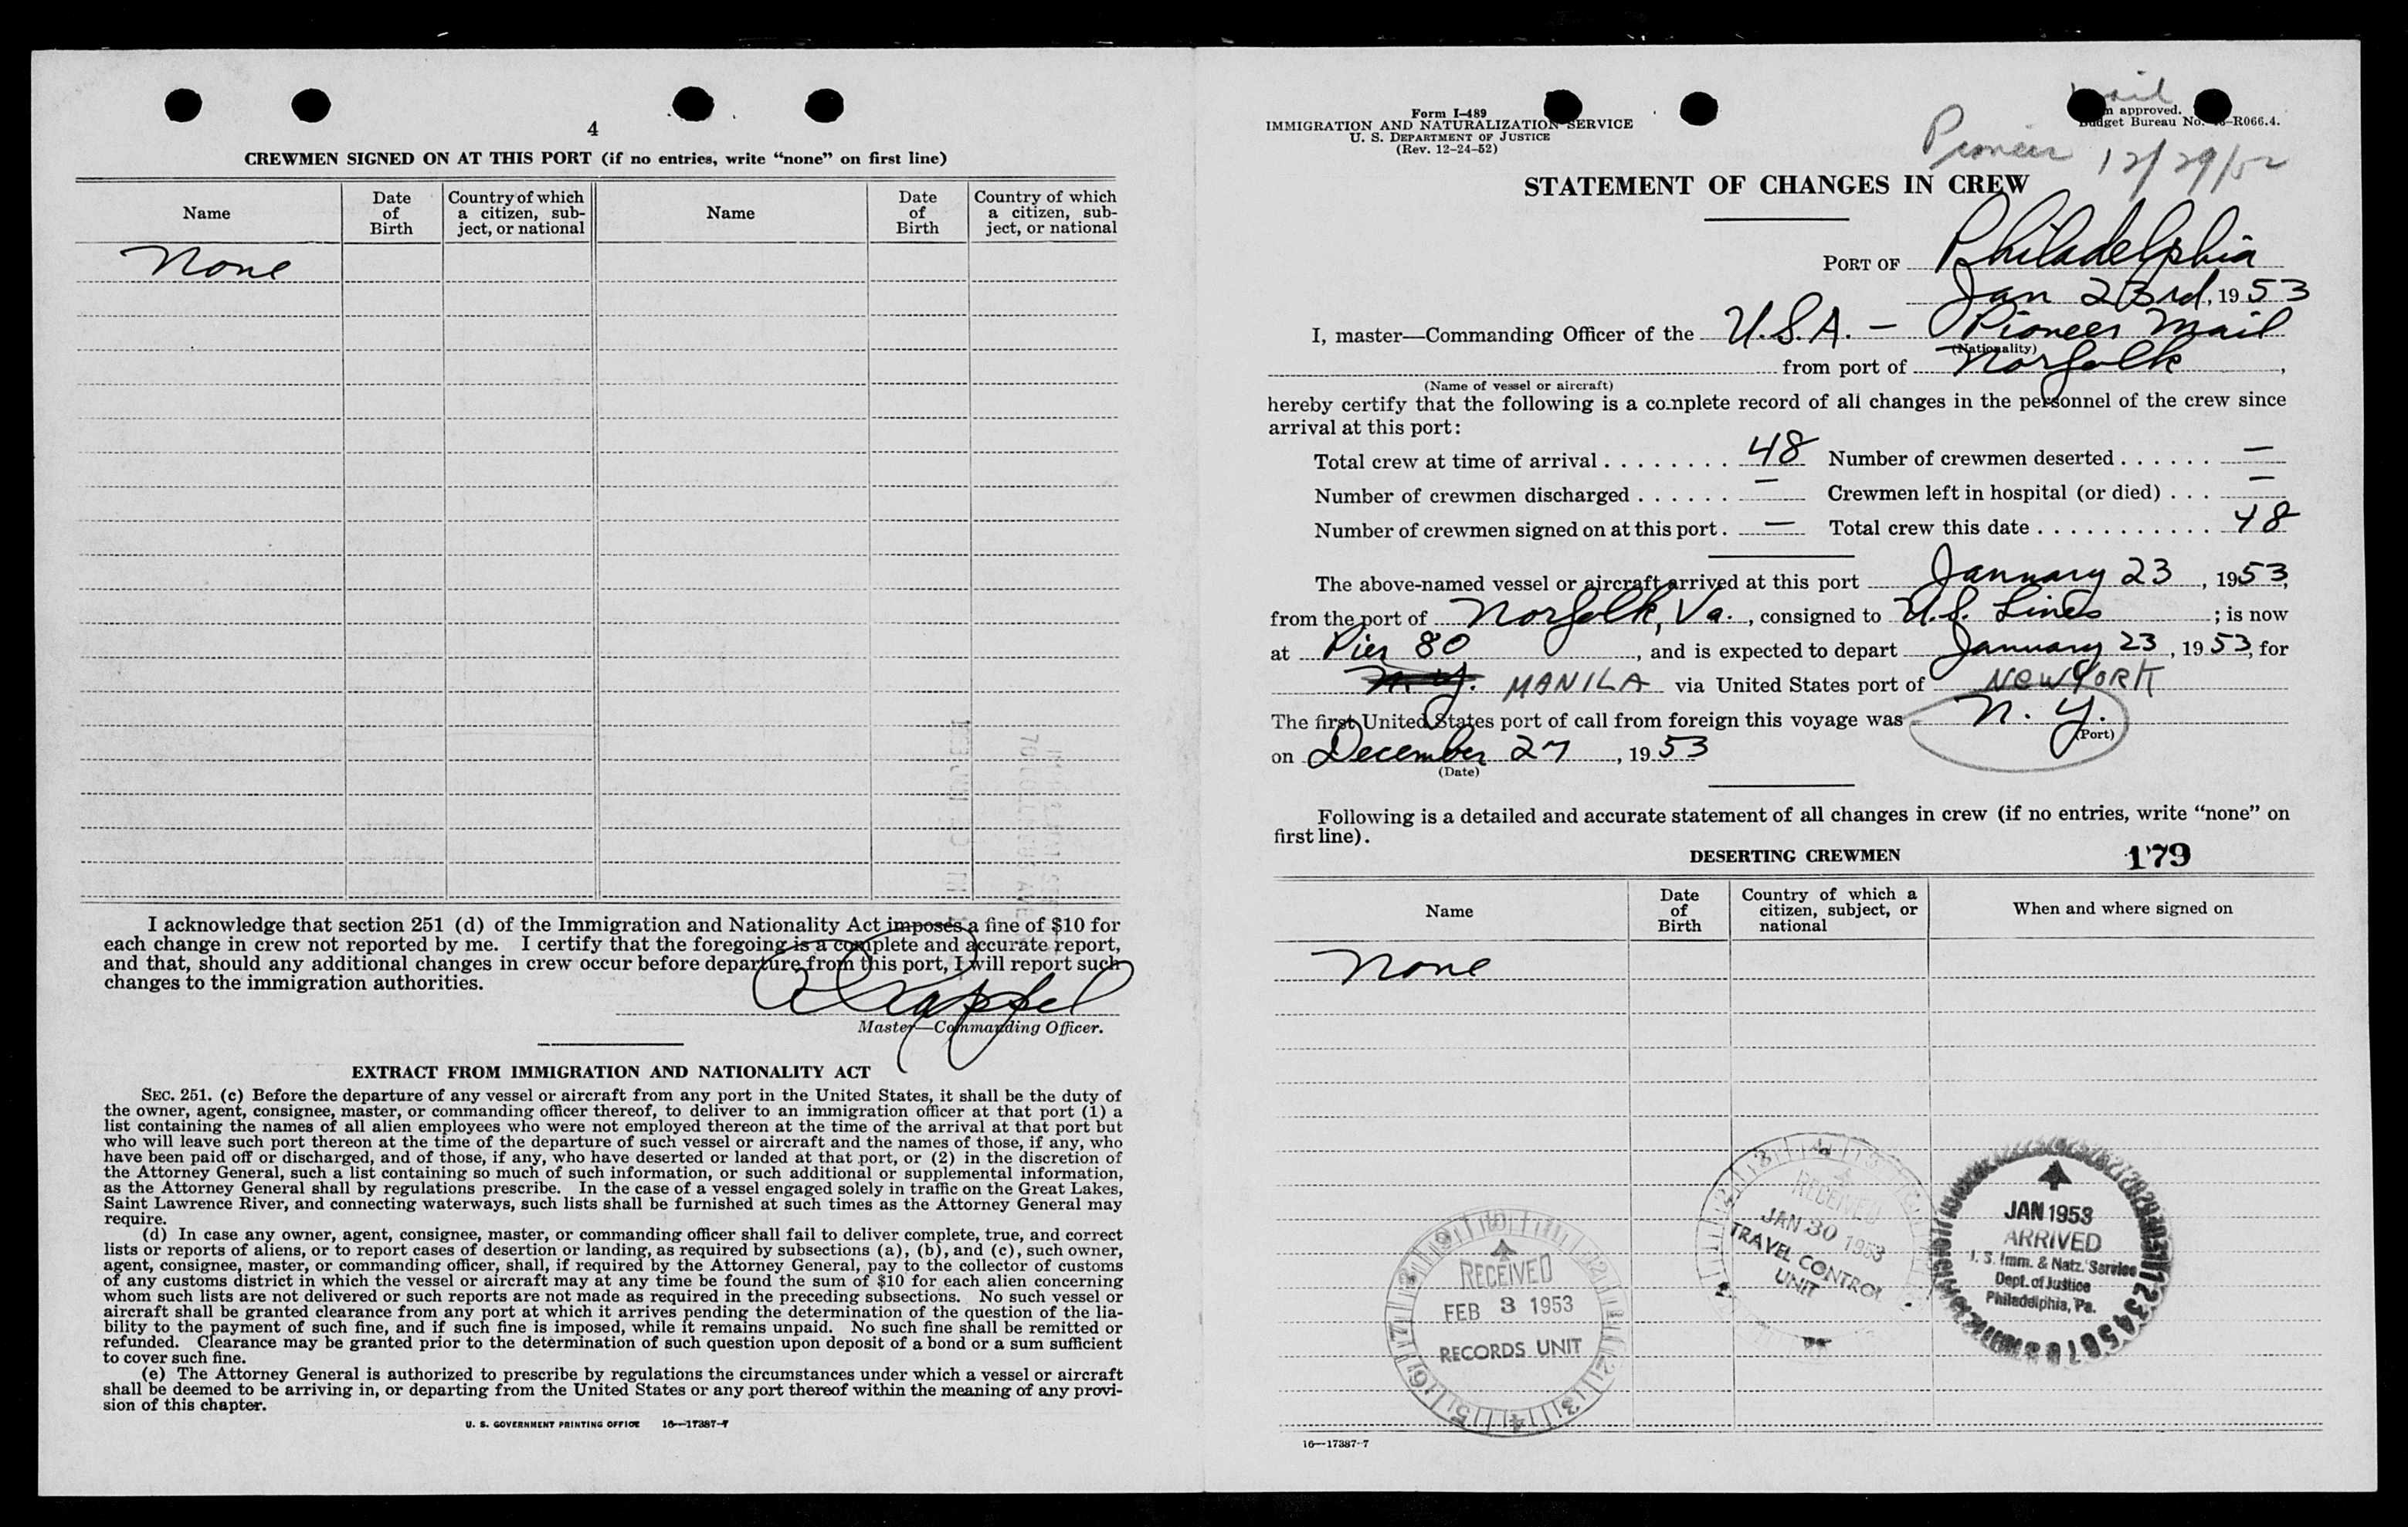 4
CREWMEN SIGNED ON AT THIS PORT (if no entries, write “none” on first line)
Name
Date of Birth
Country of which a citizen, subject, or national
Name
Date of Birth
Country of which a citizen, subject, or national
None
I acknowledge that section 251 (d) of the Immigration and Nationality Act imposes a fine of $10 for
each change in crew not reported by me. I certify that the foregoing is a complete and accurate report,
and that, should any additional changes in crew occur before departure from this port, I will report such
changes to the immigration authorities.
Master—Commanding Officer.
EXTRACT FROM IMMIGRATION AND NATIONALITY ACT
SEC. 251. (c) Before the departure of any vessel or aircraft from any port in the United States, it shall be the duty of
the owner, agent, consignee, master, or commanding officer thereof, to deliver to an immigration officer at that port (1) a
list containing the names of all alien employees who were not employed thereon at the time of the arrival at that port but
who will leave such port thereon at the time of the departure of such vessel or aircraft and the names of those, if any, who
have been paid off or discharged, and of those, if any, who have deserted or landed at that port, or (2) in the discretion of
the Attorney General, such a list containing so much of such information, or such additional or supplemental information,
as the Attorney General shall by regulations prescribe. In the case of a vessel engaged solely in traffic on the Great Lakes,
Saint Lawrence River, and connecting waterways, such lists shall be furnished at such times as the Attorney General may
require.
(d) In case any owner, agent, consignee, master, or commanding officer shall fail to deliver complete, true, and correct
lists or reports of aliens, or to report cases of desertion or landing, as required by subsections (a), (b), and (c), such owner,
agent, consignee, master, or commanding officer, shall, if required by the Attorney General, pay to the collector of customs
of any customs district in which the vessel or aircraft may at any time be found the sum of $10 for each alien concerning
whom such lists are not delivered or such reports are not made as required in the preceding subsections. No such vessel or
aircraft shall be granted clearance from any port at which it arrives pending the determination of the question of the lia-
bility to the payment of such fine, and if such fine is imposed, while it remains unpaid. No such fine shall be remitted or
refunded. Clearance may be granted prior to the determination of such question upon deposit of a bond or a sum sufficient
to cover such fine.
(e) The Attorney General is authorized to prescribe by regulations the circumstances under which a vessel or aircraft
shall be deemed to be arriving in, or departing from the United States or any port thereof within the meaning of any provi-
sion of this chapter.
U. S. GOVERNMENT PRINTING OFFICE 16—17387-7
Form I-489
IMMIGRATION AND NATURALIZATION SERVICE
U. S. DEPARTMENT OF JUSTICE
(Rev. 12-24-52)
Mail
approved.
Budget Bureau No. -R066.4.
Pioneer 12/29/52
STATEMENT OF CHANGES IN CREW
PORT OF Philadelphia
Jan 23rd, 1953
I, master—Commanding Officer of the U.S.A. - Pioneer Mail
(Nationality)
from port of Norfolk,
(Name of vessel or aircraft)
hereby certify that the following is a complete record of all changes in the personnel of the crew since
arrival at this port:
Total crew at time of arrival . . . . . . . . 48 Number of crewmen deserted . . . . . . —
Number of crewmen discharged . . . . . . — Crewmen left in hospital (or died) . . . —
Number of crewmen signed on at this port . — Total crew this date . . . . . . . . . . . 48
The above-named vessel or aircraft arrived at this port January 23, 1953,
from the port of Norfolk, Va., consigned to U.S. Lines ; is now
at Pier 80, and is expected to depart January 23, 1953, for
N.Y. MANILA via United States port of NEW YORK
The first United States port of call from foreign this voyage was N.Y.
(Port)
on December 27, 1953
(Date)
Following is a detailed and accurate statement of all changes in crew (if no entries, write “none” on
first line).
DESERTING CREWMEN
179
Name
Date of Birth
Country of which a citizen, subject, or national
When and where signed on
None
RECEIVED
FEB 3 1953
RECORDS UNIT
RECEIVED
JAN 30 1953
TRAVEL CONTROL
UNIT
JAN 1953
ARRIVED
Imm. & Natz. Service
Dept. of Justice
Philadelphia, Pa.
16—17387-7